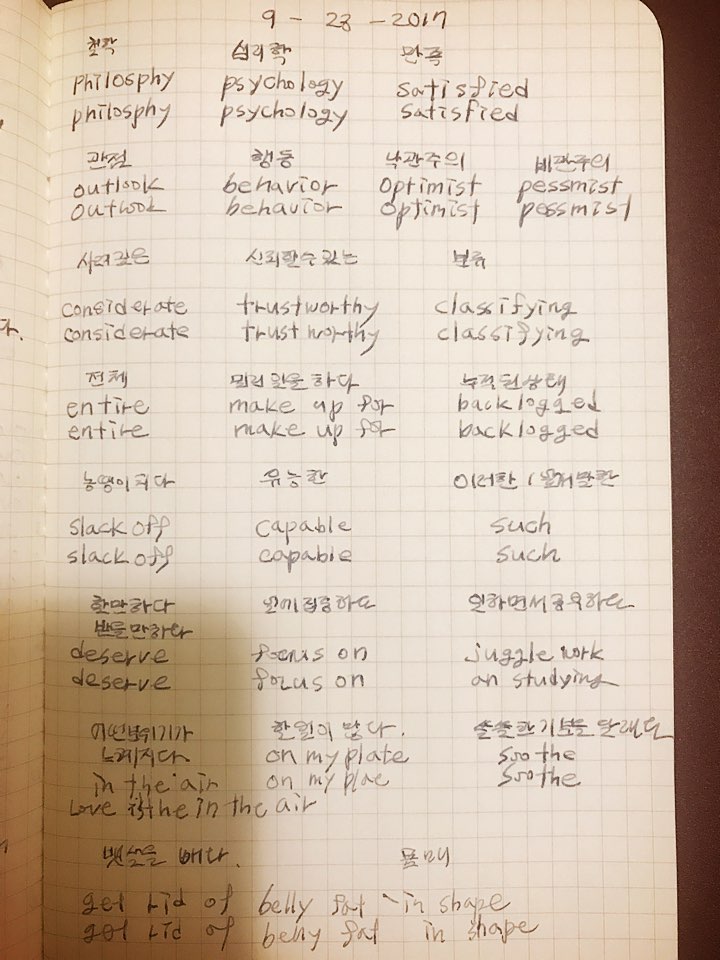 9 - 23 - 2017
철학 심리학 만족
philosphy psychology satisfied
philosphy psychology satisfied
관점 행동 낙관주의 비관주의
outlook behavior optimist pessmist
outlook behavior optimist pessmist
사려깊은 신뢰할수있는 분류
considerate trustworthy classifying
considerate trustworthy classifying
전체 미리 일을 하다 누적된상태
entire make up for backlogged
entire make up for backlogged
농땡이치다 유능한 이러한 /
slack off capable such
slack off capable such
할만하다 일에집중하다 일하면서공부하다
받을만하다
deserve focus on juggle work
deserve focus on an studying
어떤분위기가 할일이 많다. 한기분을 달래다
느껴지다 on my plate soothe
in the air on my plae soothe
Love is the in the air
뱃살을 빼다. 몸매
get rid of belly fat - in shape
get rid of belly fat in shape